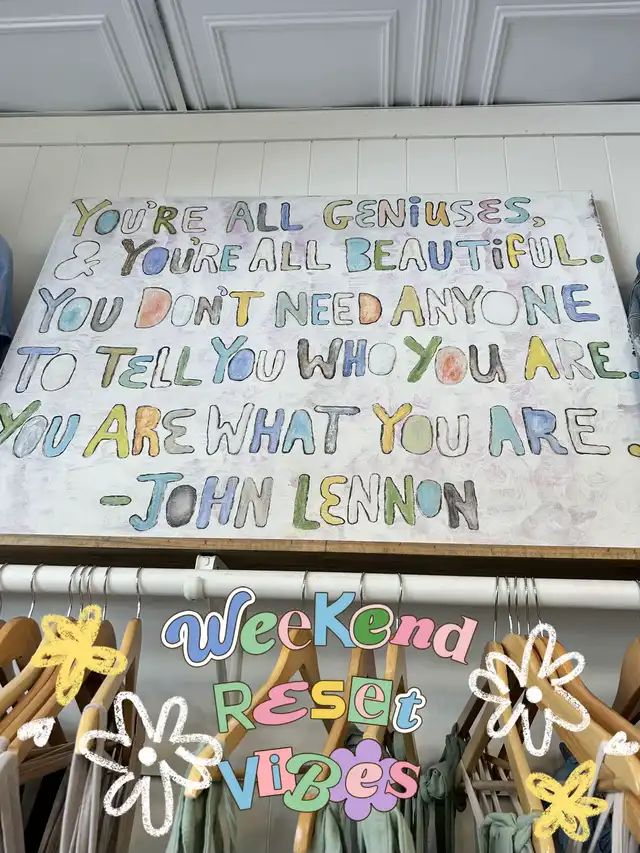 YOU'RE ALL GENIUSES,
& YOU'RE ALL BEAUTIFUL.
YOU DON'T NEED ANYONE
TO TELL YOU WHO YOU ARE.
YOU ARE WHAT YOU ARE.
-JOHN LENNON
WEEKEND
RESET
VIBES